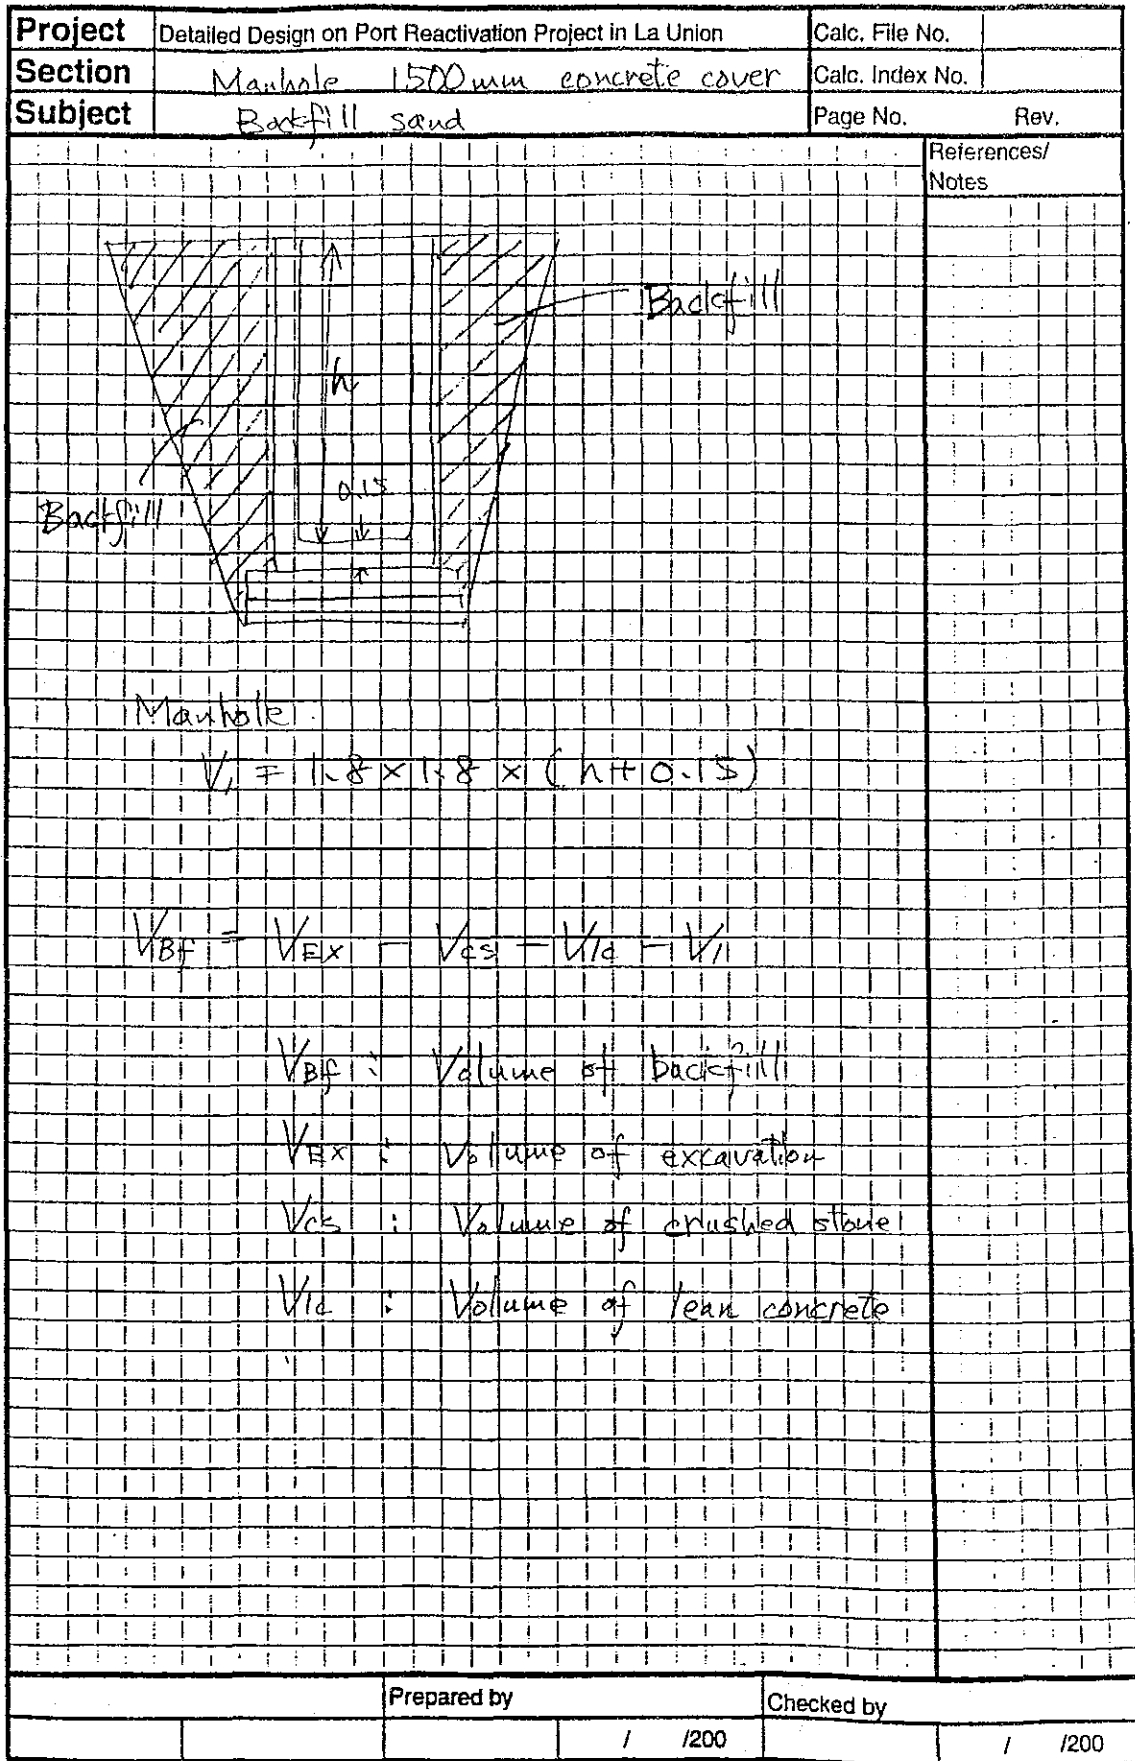 Project Detailed Design on Port Reactivation Project in La Union Calc. File No.
Section Manhole 1500mm concrete cover Calc. Index No.
Subject Backfill sand Page No. Rev.
References/
Notes
Backfill
h
0.15
Backfill
Manhole
V1 = 1.8 × 1.8 × (h+0.15)
VBf = VEX - Vcs - Vlc - V1
VBf : Volume of backfill
VEX : Volume of excavation
Vcs : Volume of crushed stone
Vlc : Volume of lean concrete
Prepared by Checked by
/ /200 / /200